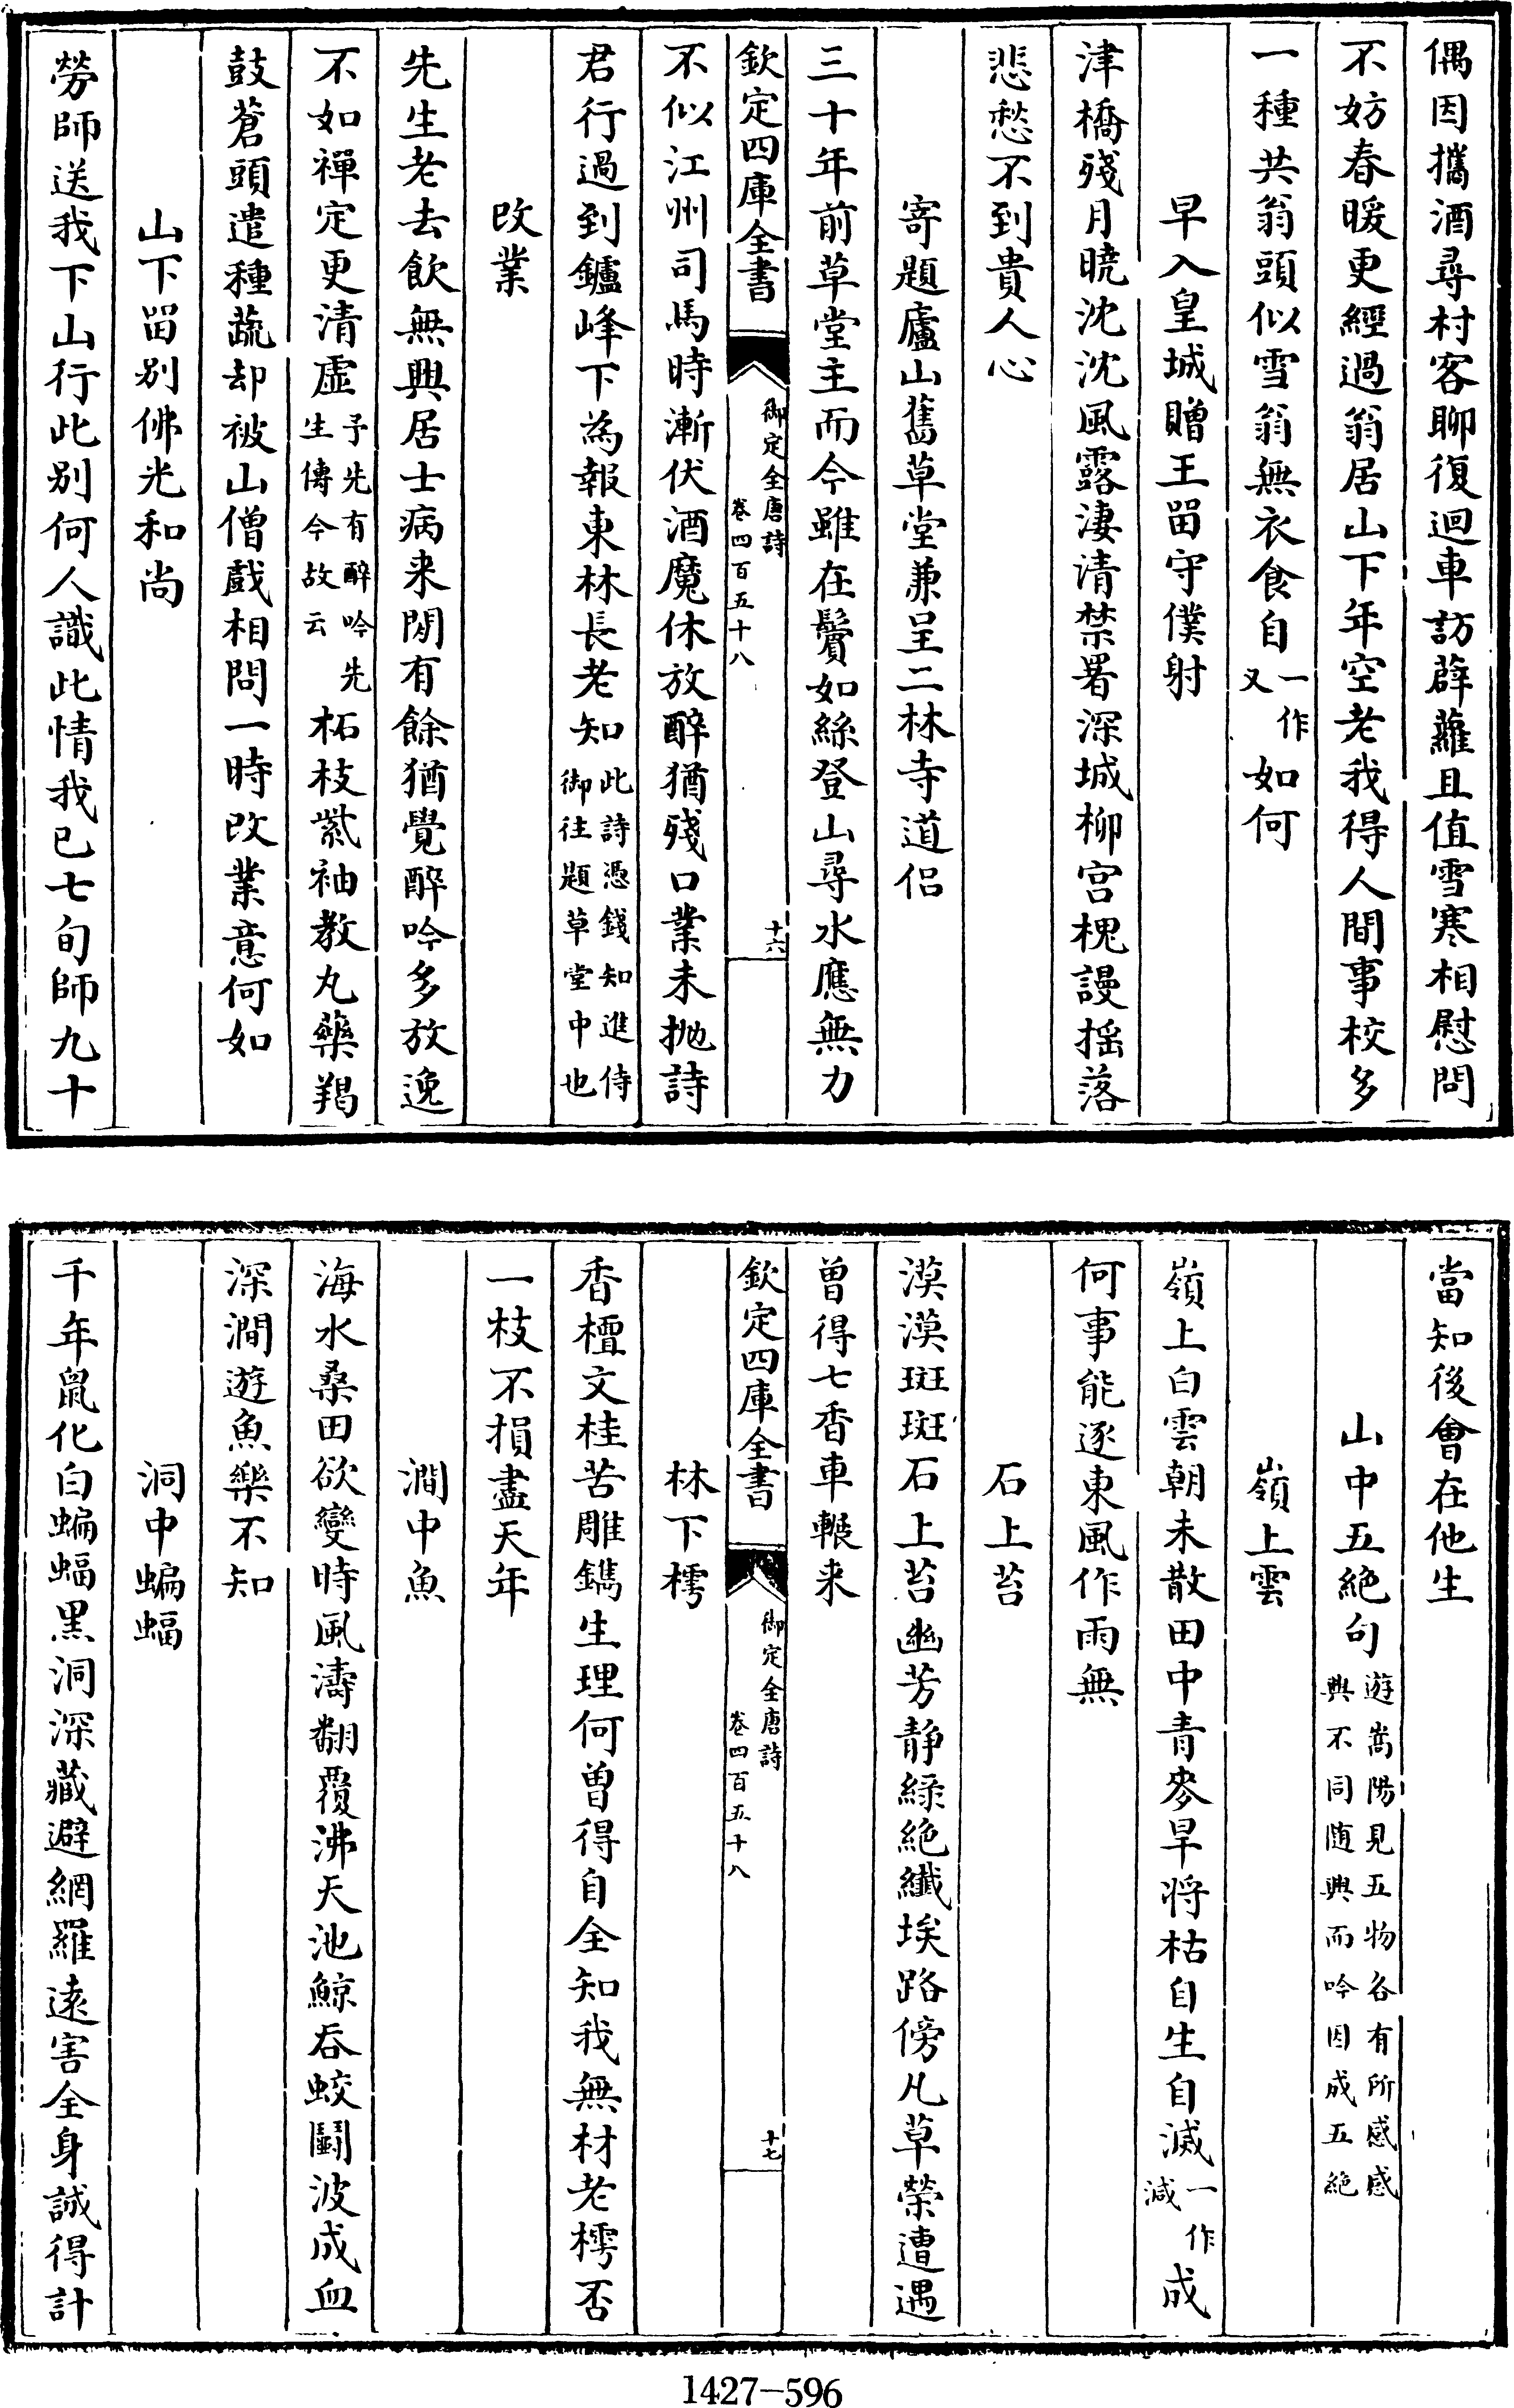 偶因攜酒尋村客聊復迴車訪薜蘿且值雪寒相慰問
不妨春暖更經過翁居山下年空老我得人間事校多
一種共翁頭似雪翁無衣食自一作又如何
早入皇城贈王留守僕射
津橋殘月曉沈沈風露淒清禁署深城柳宮槐謾搖落
悲愁不到貴人心
寄題廬山舊草堂兼呈二林寺道侶
三十年前草堂主而今雖在鬢如絲登山尋水應無力
欽定四庫全書 御定全唐詩 卷四百五十八 十六
不似江州司馬時漸伏酒魔休放醉猶殘口業未拋詩
君行過到鑪峰下為報東林長老知此詩憑錢知進侍御往題草堂中也
改業
先生老去飲無興居士病來閒有餘猶覺醉吟多放逸
不如禪定更清虛予先有醉吟先生傳今故云柘枝紫袖教丸藥羯
鼓蒼頭遣種蔬却被山僧戲相問一時改業意何如
山下留別佛光和尚
勞師送我下山行此別何人識此情我已七旬師九十
當知後會在他生
山中五絕句遊嵩陽見五物各有所感感興不同隨興而吟因成五絕
嶺上雲
嶺上白雲朝未散田中青麥旱將枯自生自滅一作減成
何事能逐東風作雨無
石上苔
漠漠斑斑石上苔幽芳靜綠絕纖埃路傍凡草榮遭遇
曾得七香車輾來
欽定四庫全書 御定全唐詩 卷四百五十八 十七
林下樗
香檀文桂苦雕鐫生理何曾得自全知我無材老樗否
一枝不損盡天年
澗中魚
海水桑田欲變時風濤翻覆沸天池鯨吞蛟鬭波成血
深澗遊魚樂不知
洞中蝙蝠
千年鼠化白蝙蝠黑洞深藏避網羅遠害全身誠得計
1427-596